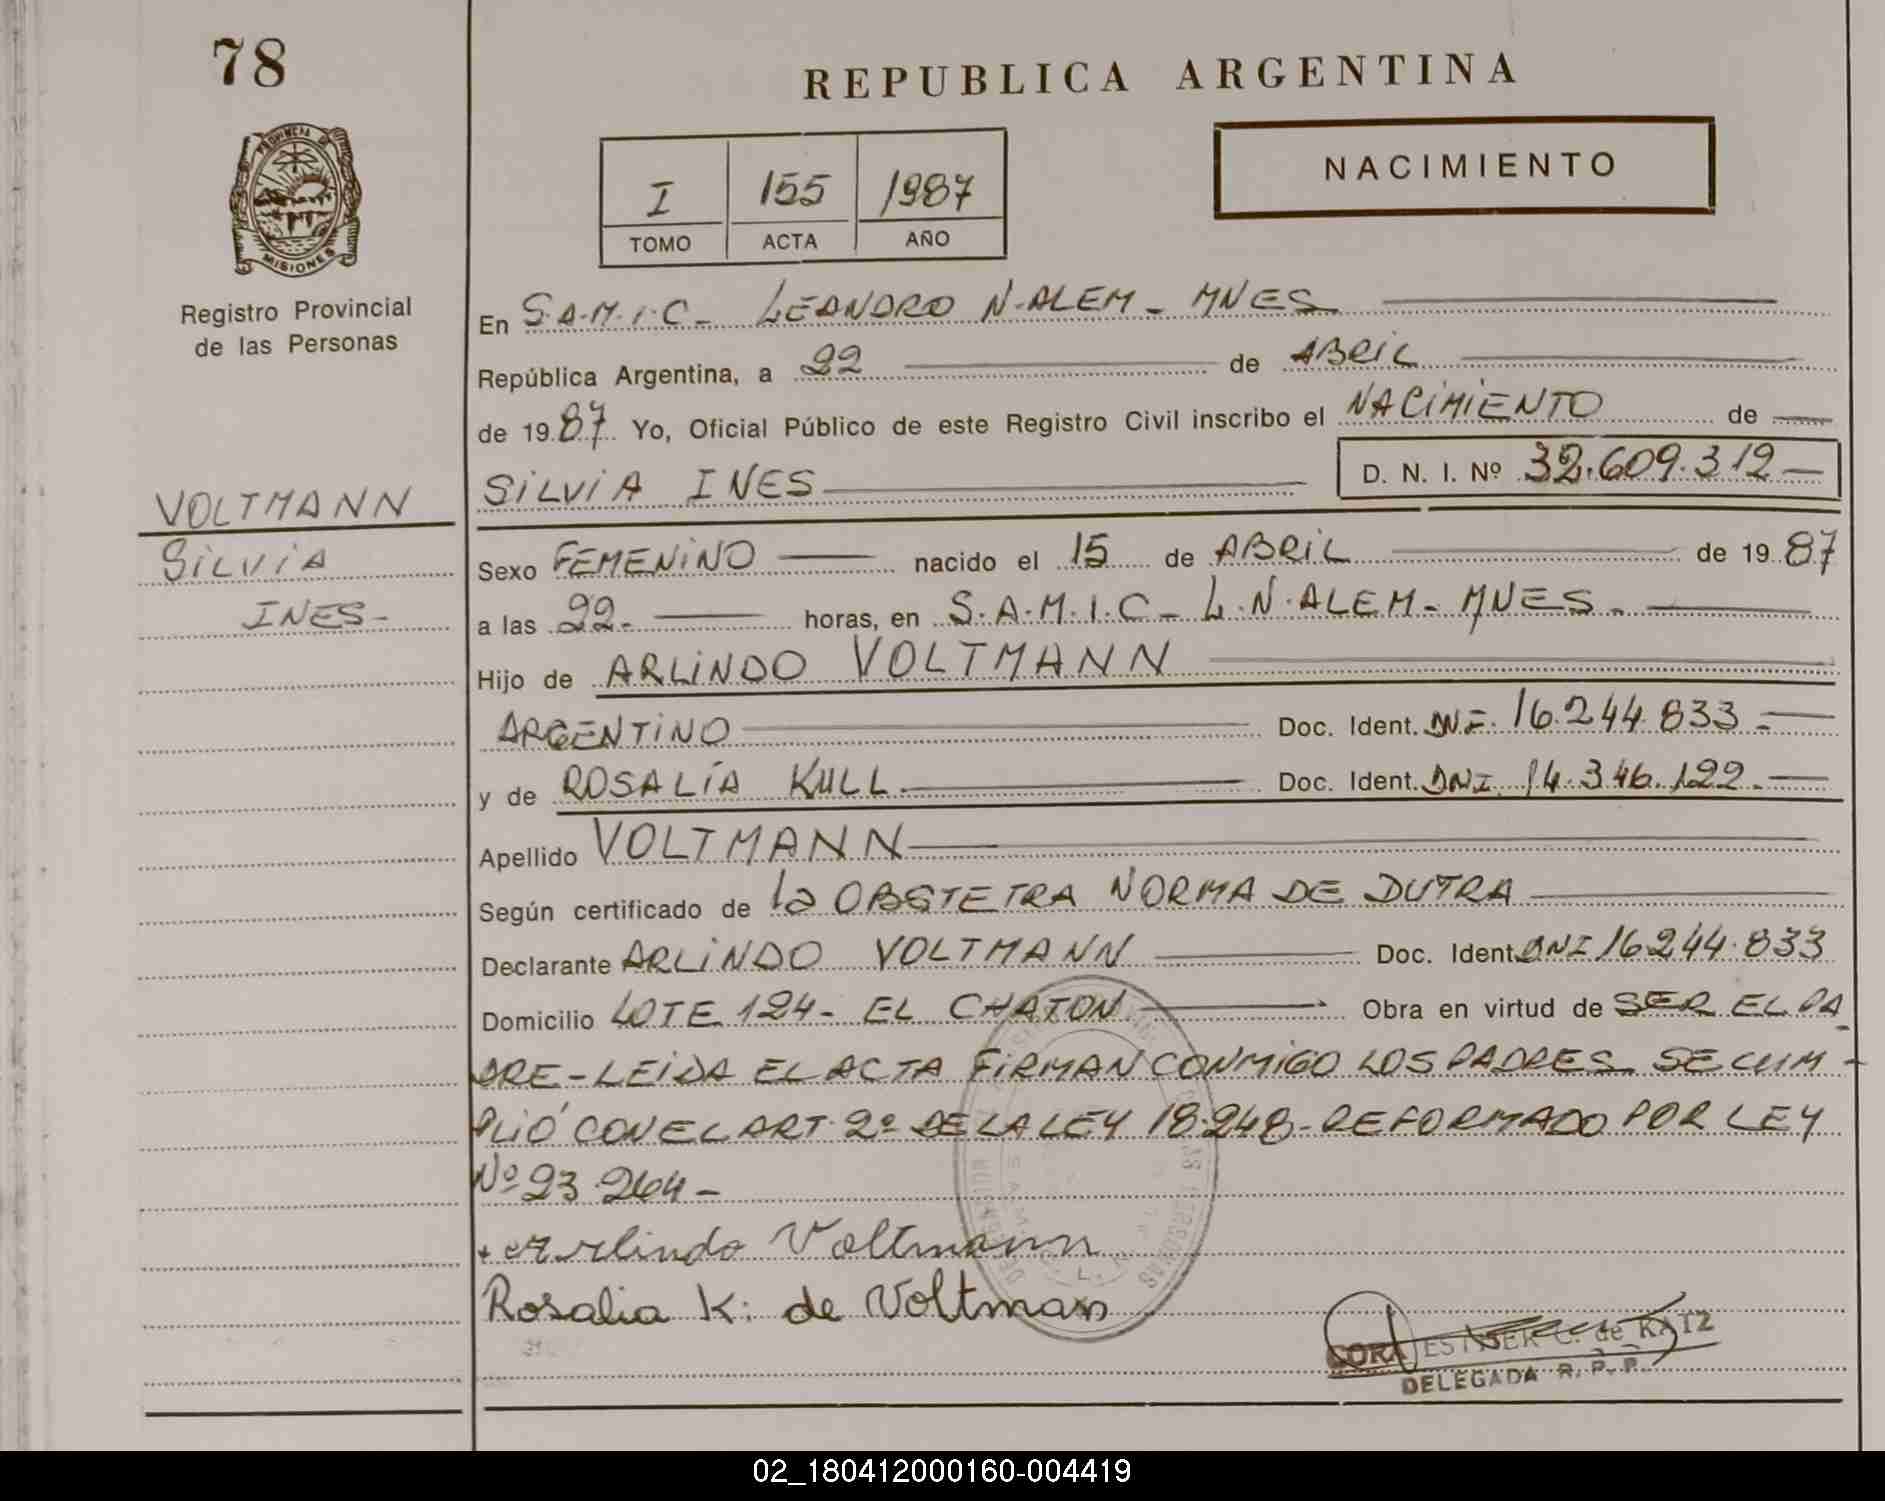 78
REPUBLICA ARGENTINA
PROVINCIA DE
MISIONES
Registro Provincial
de las Personas
I 155 1987
TOMO ACTA AÑO
NACIMIENTO
En S.A.M.I.C- LEANDRO N.ALEM- MNES
República Argentina, a 22 de ABRIL
de 1987 Yo, Oficial Público de este Registro Civil inscribo el NACIMIENTO de
SILVIA INES D. N. I. Nº 32.609.312
VOLTMANN
SILVIA
INES-
Sexo FEMENINO nacido el 15 de ABRIL de 1987
a las 22- horas, en S.A.M.I.C- L.N.ALEM- MNES-
Hijo de ARLINDO VOLTMANN
ARGENTINO Doc. Ident. DNI. 16.244.833-
y de ROSALÍA KULL Doc. Ident. DNI 14.346.122-
Apellido VOLTMANN
Según certificado de la OBSTETRA NORMA DE DUTRA
Declarante ARLINDO VOLTMANN Doc. Ident. DNI 16.244.833
Domicilio LOTE 124- EL CHATON Obra en virtud de SER EL PA
DRE-LEIDA EL ACTA FIRMAN CONMIGO LOS PADRES. SE CUM-
PLIÓ CON EL ART. 2º DE LA LEY 18.248-REFORMADO POR LEY
Nº 23.264-
Arlindo Voltmann
Rosalia K. de Voltman
CORA ESTHER C. de KATZ
DELEGADA R. P. P.
02_180412000160-004419